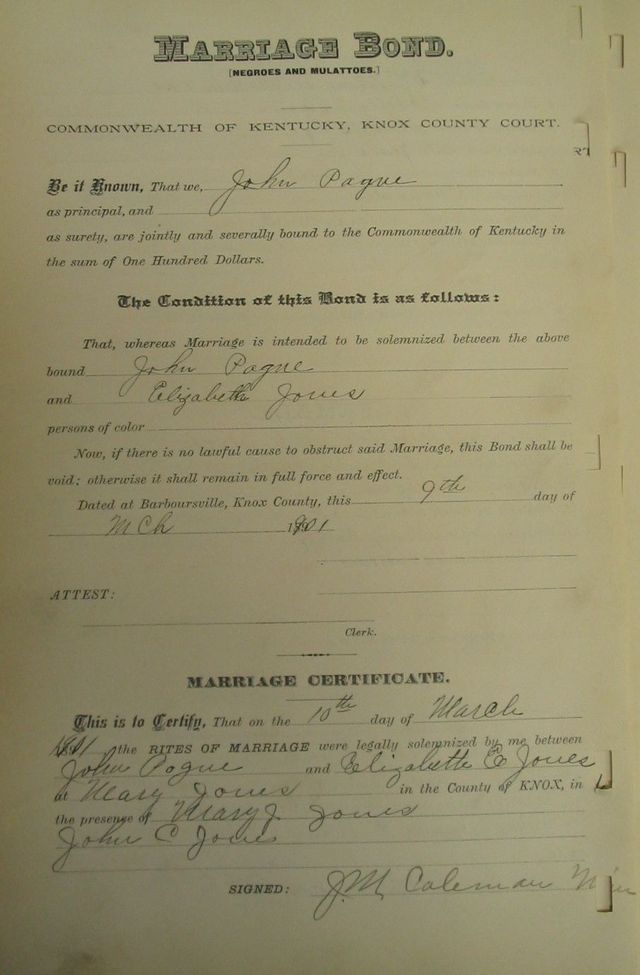 MARRIAGE BOND.
[NEGROES AND MULATTOES.]
COMMONWEALTH OF KENTUCKY, KNOX COUNTY COURT.
Be it Known, That we, John Pogue
as principal, and
as surety, are jointly and severally bound to the Commonwealth of Kentucky in
the sum of One Hundred Dollars.
The Condition of this Bond is as follows:
That, whereas Marriage is intended to be solemnized between the above
bound John Pogue
and Elizabeth Jones
persons of color
Now, if there is no lawful cause to obstruct said Marriage, this Bond shall be
void; otherwise it shall remain in full force and effect.
Dated at Barboursville, Knox County, this 9th day of
Mch 1901
ATTEST:
Clerk.
MARRIAGE CERTIFICATE.
This is to Certify, That on the 10th day of March
1901 the RITES OF MARRIAGE were legally solemnized by me between
John Pogue and Elizabeth E Jones
at Mary Jones in the County of KNOX, in
the presence of Mary J. Jones
John C Jones
SIGNED: J.M. Coleman